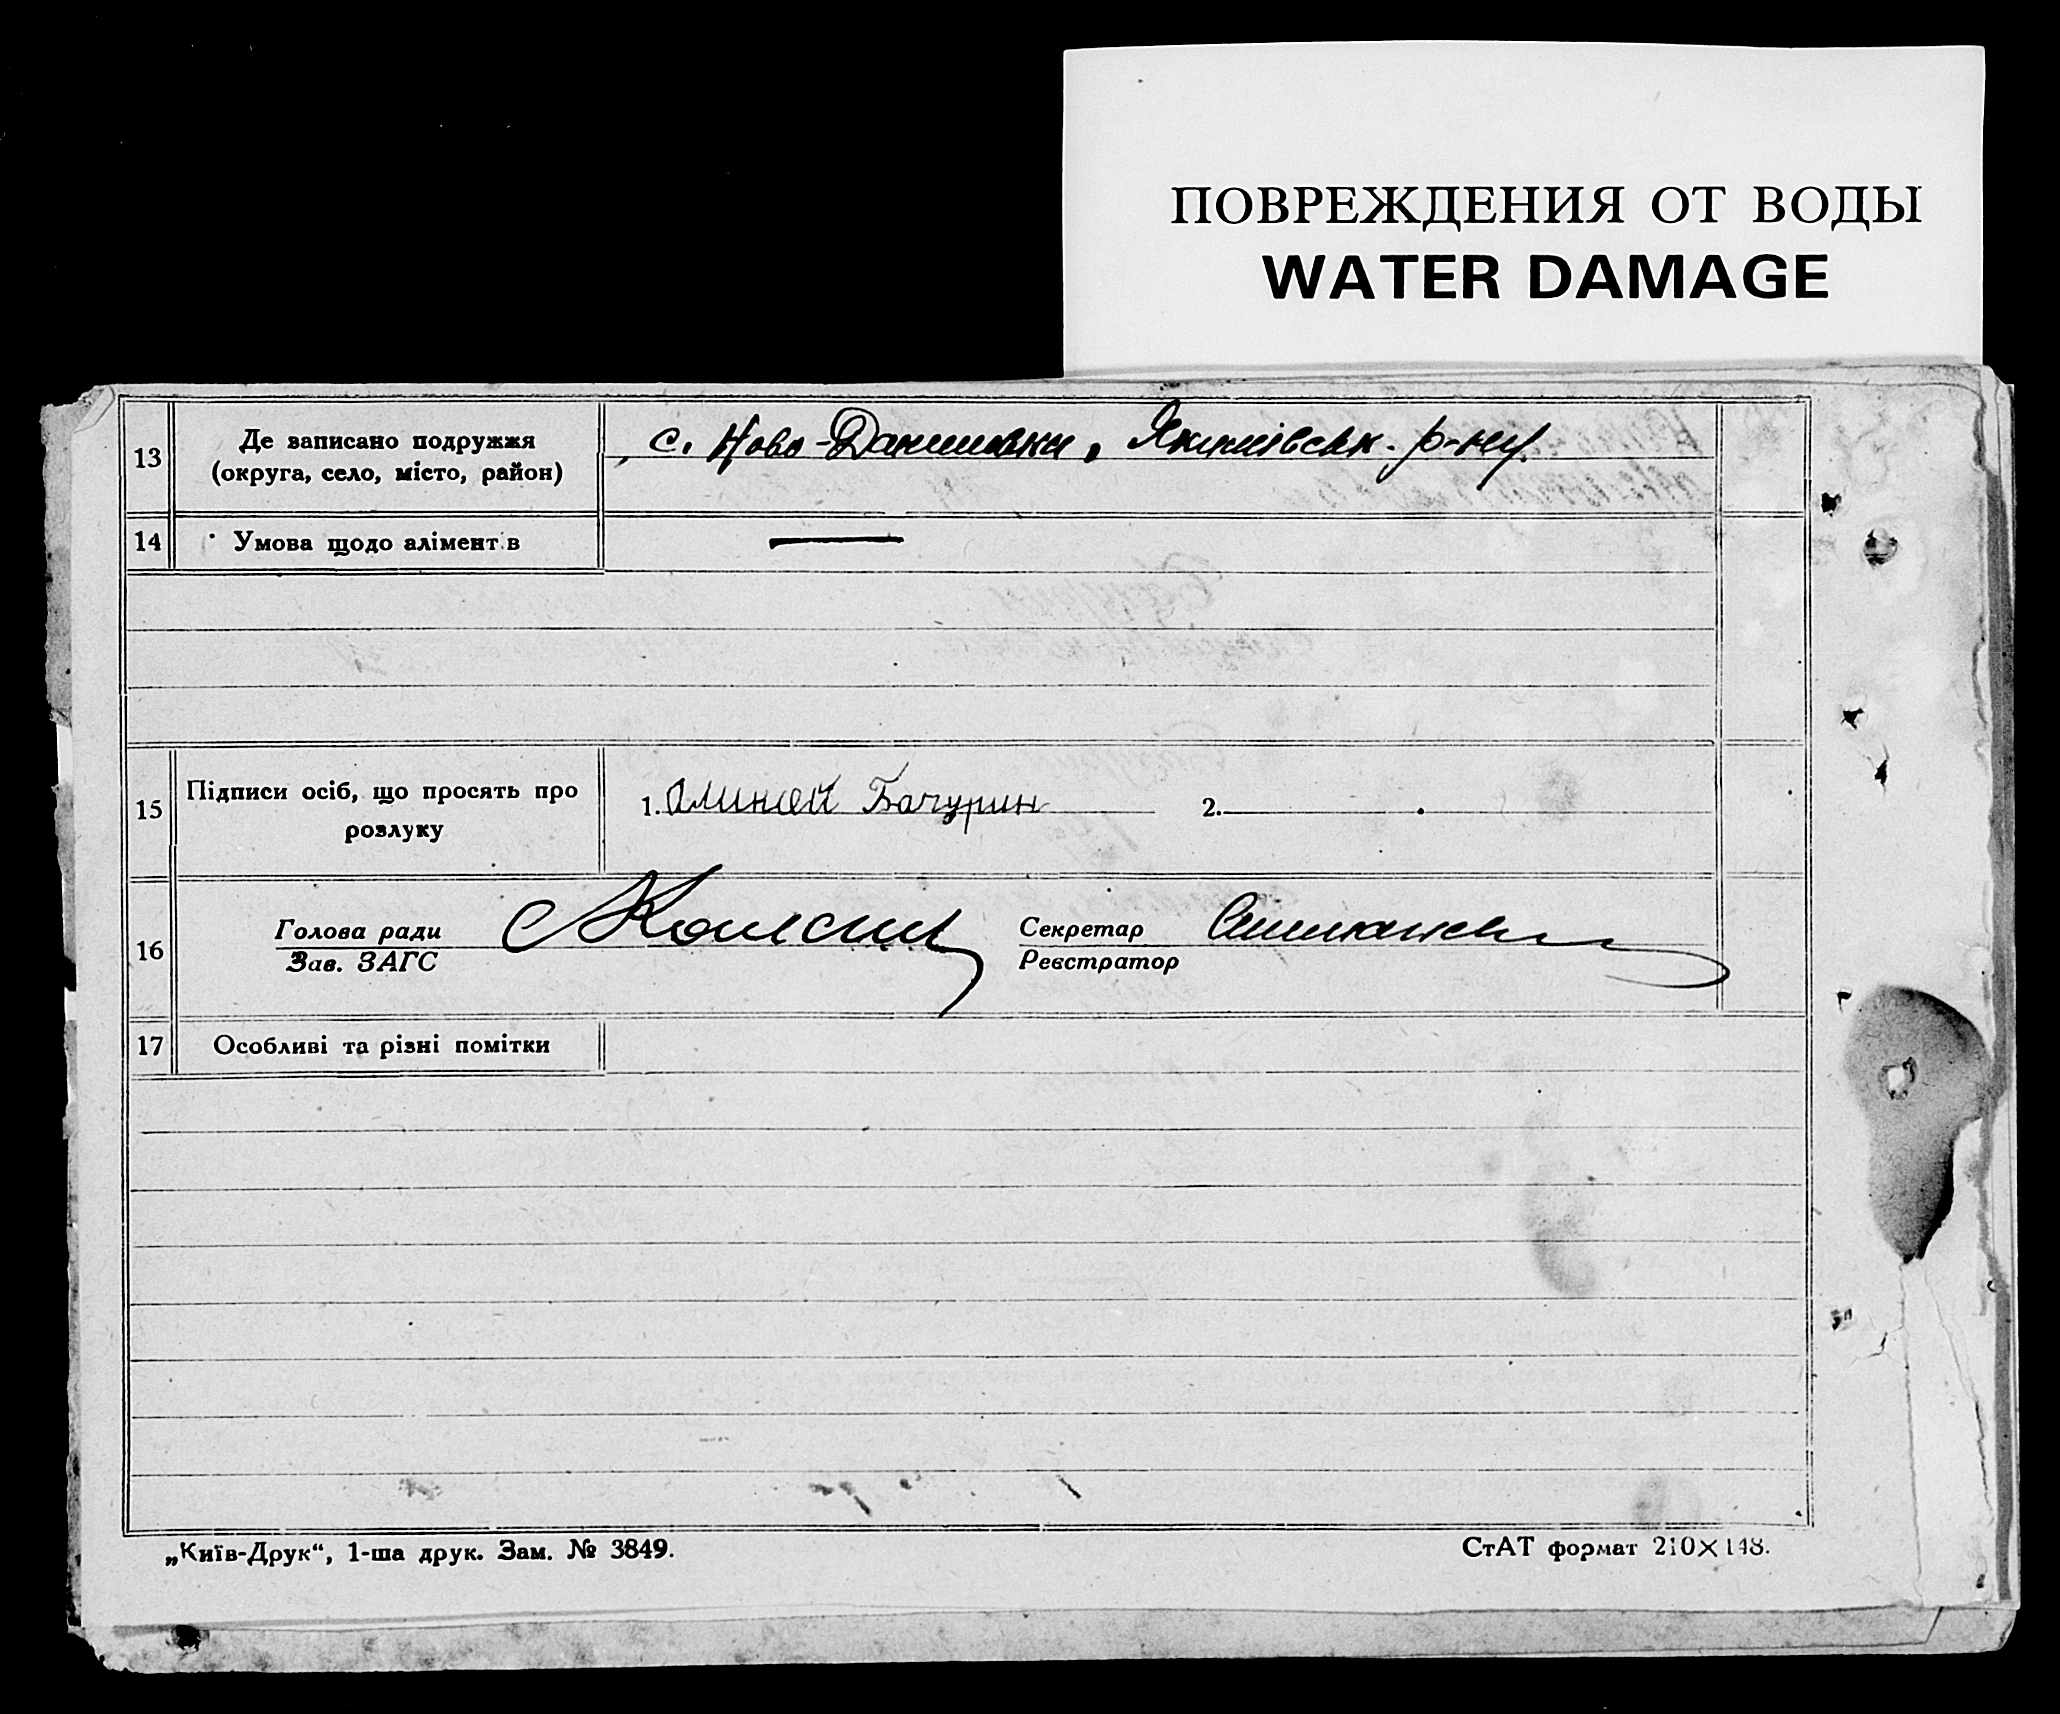 ПОВРЕЖДЕНИЯ ОТ ВОДЫ
WATER DAMAGE
13 Де записано подружжя с. Ново-Данилівки, Якимівськ. р-ну.
(округа, село, місто, район)
14 Умова щодо аліментів —
15 Підписи осіб, що просять про 1. Бачурин 2.
розлуку
16 Голова ради Секретар
Зав. ЗАГС Реєстратор
17 Особливі та різні помітки
„Київ-Друк“, 1-ша друк. Зам. № 3849. СтАТ формат 210×148.